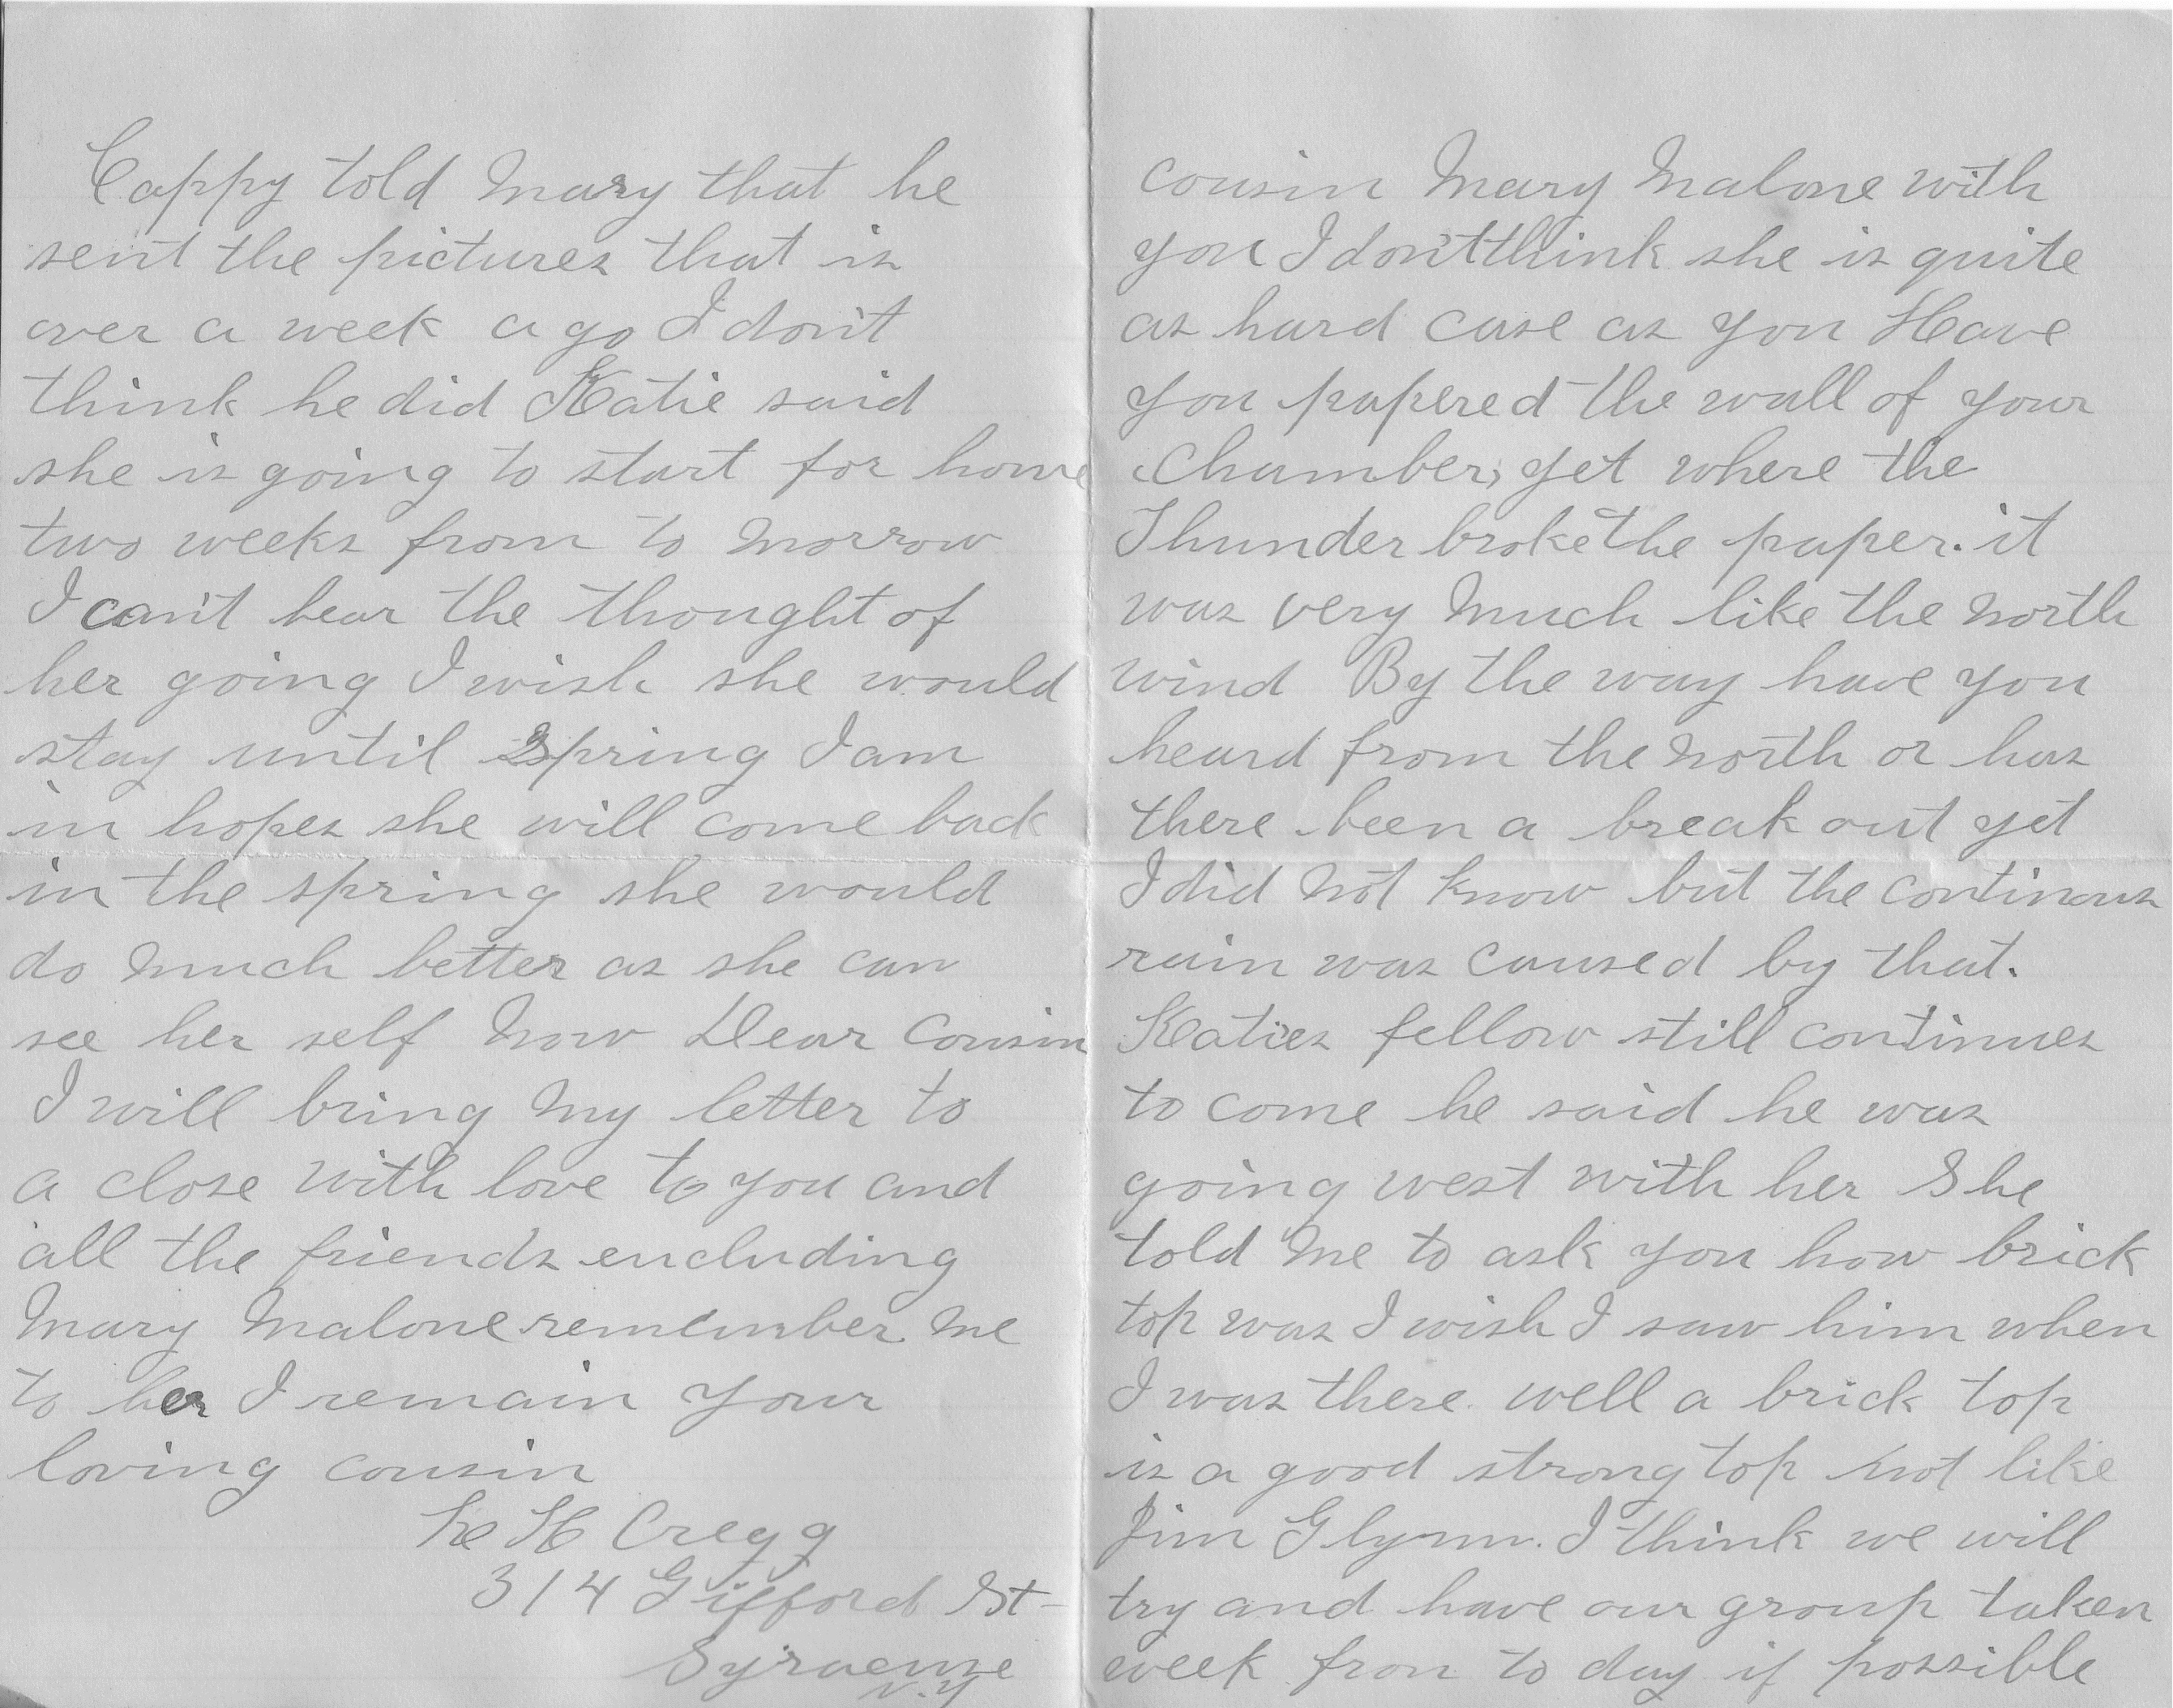 Cappy told Mary that he
sent the pictures that is
over a week a go I don't
think he did Katie said
she is going to start for home
two weeks from to morrow
I can't bear the thought of
her going I wish she would
stay until Spring I am
in hopes she will come back
in the spring she would
do much better as she can
see her self Now Dear Cousin
I will bring my letter to
a close with love to you and
all the friends encluding
Mary Malone remember me
to her I remain your
loving cousin
H Cregg
314 Gifford St
Syracuse
N.Y
cousin Mary Malone with
you I don't think she is quite
as hard case as you Have
you papered the wall of your
Chamber, yet where the
Thunder broke the paper. it
was very much like the north
wind By the way have you
heard from the north or has
there been a break out yet
I did not know but the continous
rain was caused by that.
Katies fellow still continues
to come he said he was
going west with her She
told me to ask you how brick
top was I wish I saw him when
I was there. well a brick top
is a good strong top not like
Jim Glynn. I think we will
try and have our group taken
week fron to day if possible